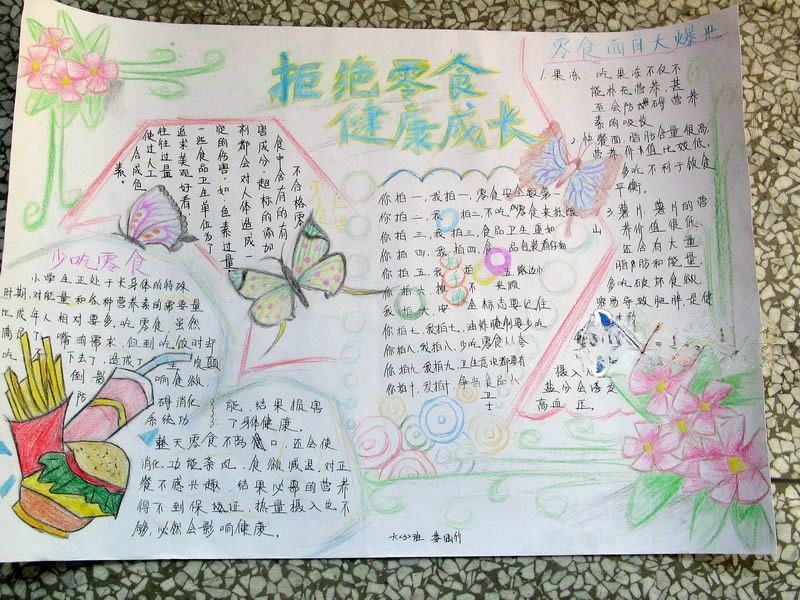 拒绝零食
健康成长
不合格零
食中含有的有
害成分、超标的添加
剂都会对人体造成一
定的伤害，如：色素过量
一些食品卫生单位为了
追求美观好看，
往往过量
使过人工
合成色
素。
少吃零食
小学生正处于长身体的特殊
时期，对能量和各种营养素的需要量
比成年人相对要多，吃零食虽然
满足了 嘴的需求，但到吃饭时却
吃 下去了，造成了
倒 影 响食欲
防 碍消化
系统功 能，结果损害
了身体健康。
整天零食不离口，还会使
消化功能紊乱，食欲减退，对正
餐不感兴趣，结果必需的营养
得不到保证，热量摄入也不
够，必然会影响健康。
你拍一，我拍一，零食安全数第一
你拍二，我 拍二，不吃
你拍三，我拍三，食品卫生重如山
你拍四，我拍四，食品包装看仔细
你拍五，我 拍五
你拍六，
我拍六，安 全标志要记住
你拍七，我拍七，油炸腌制要少吃
你拍八，我拍八，少吃零食
你拍九，我拍九，卫生
你拍十，我拍十，争当食品
卫
士
零食面目大爆光
1.果冻 吃果冻不仅不
能补充营养，甚
至会防碍营养
素的吸收
2.快餐面 脂肪含量很高
营养价值比较低，
多吃不利于饮食
平衡。
3.薯片，薯片的营
养价值很低，
还含有大量
脂肪和能量，
多吃破坏食欲，
容易导致肥胖，是健
摄入
盐分会诱发
高血压。
六(3)班